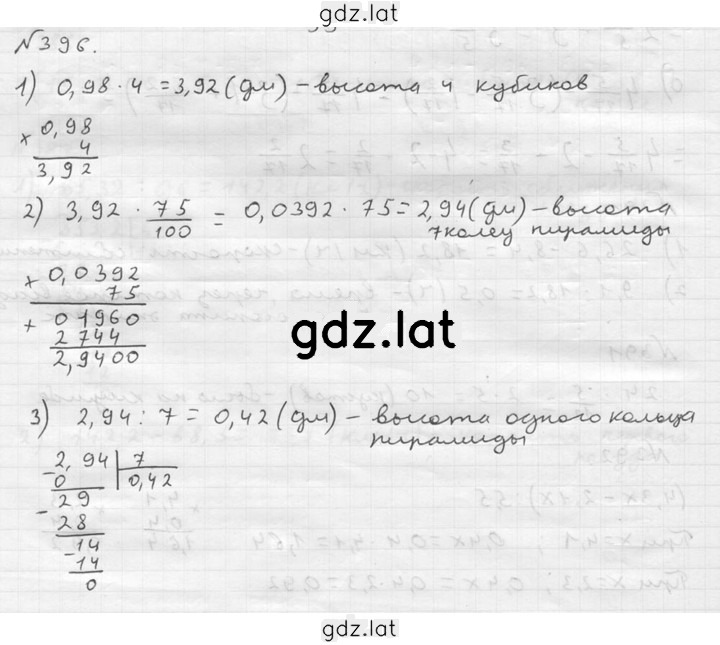 gdz.lat
№396.
1) 0,98 · 4 = 3,92 (дм) – высота 4 кубиков
× 0,98
4
3,92
2) 3,92 · 75/100 = 0,0392 · 75 = 2,94 (дм) – высота
7 колец пирамиды
× 0,0392
75
+ 01960
2744
2,9400
gdz.lat
3) 2,94 : 7 = 0,42 (дм) – высота одного кольца
пирамиды
- 2,94 | 7
0 | 0,42
- 29
28
- 14
14
0
gdz.lat